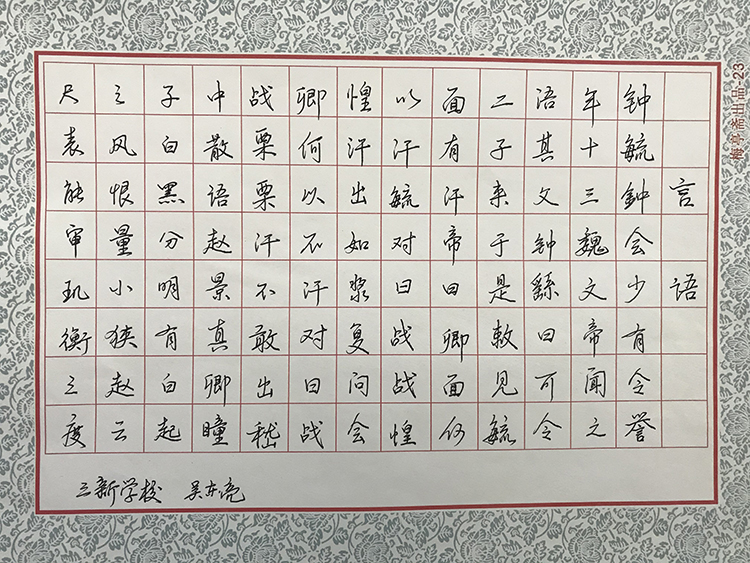 言语
钟毓鍾会少有令誉
年十三魏文帝闻之
语其文钟繇曰可令
二子来于是敕见毓
面有汗帝曰卿面何
以汗毓对曰战战惶
惶汗出如浆复问会
卿何以不汗对曰战
战栗栗汗不敢出嵇
中散语赵景真卿瞳
子白黑分明有白起
之风恨量小狭赵云
尺表能审玑衡之度
三新学校 吴东亮
亭斋出品-23